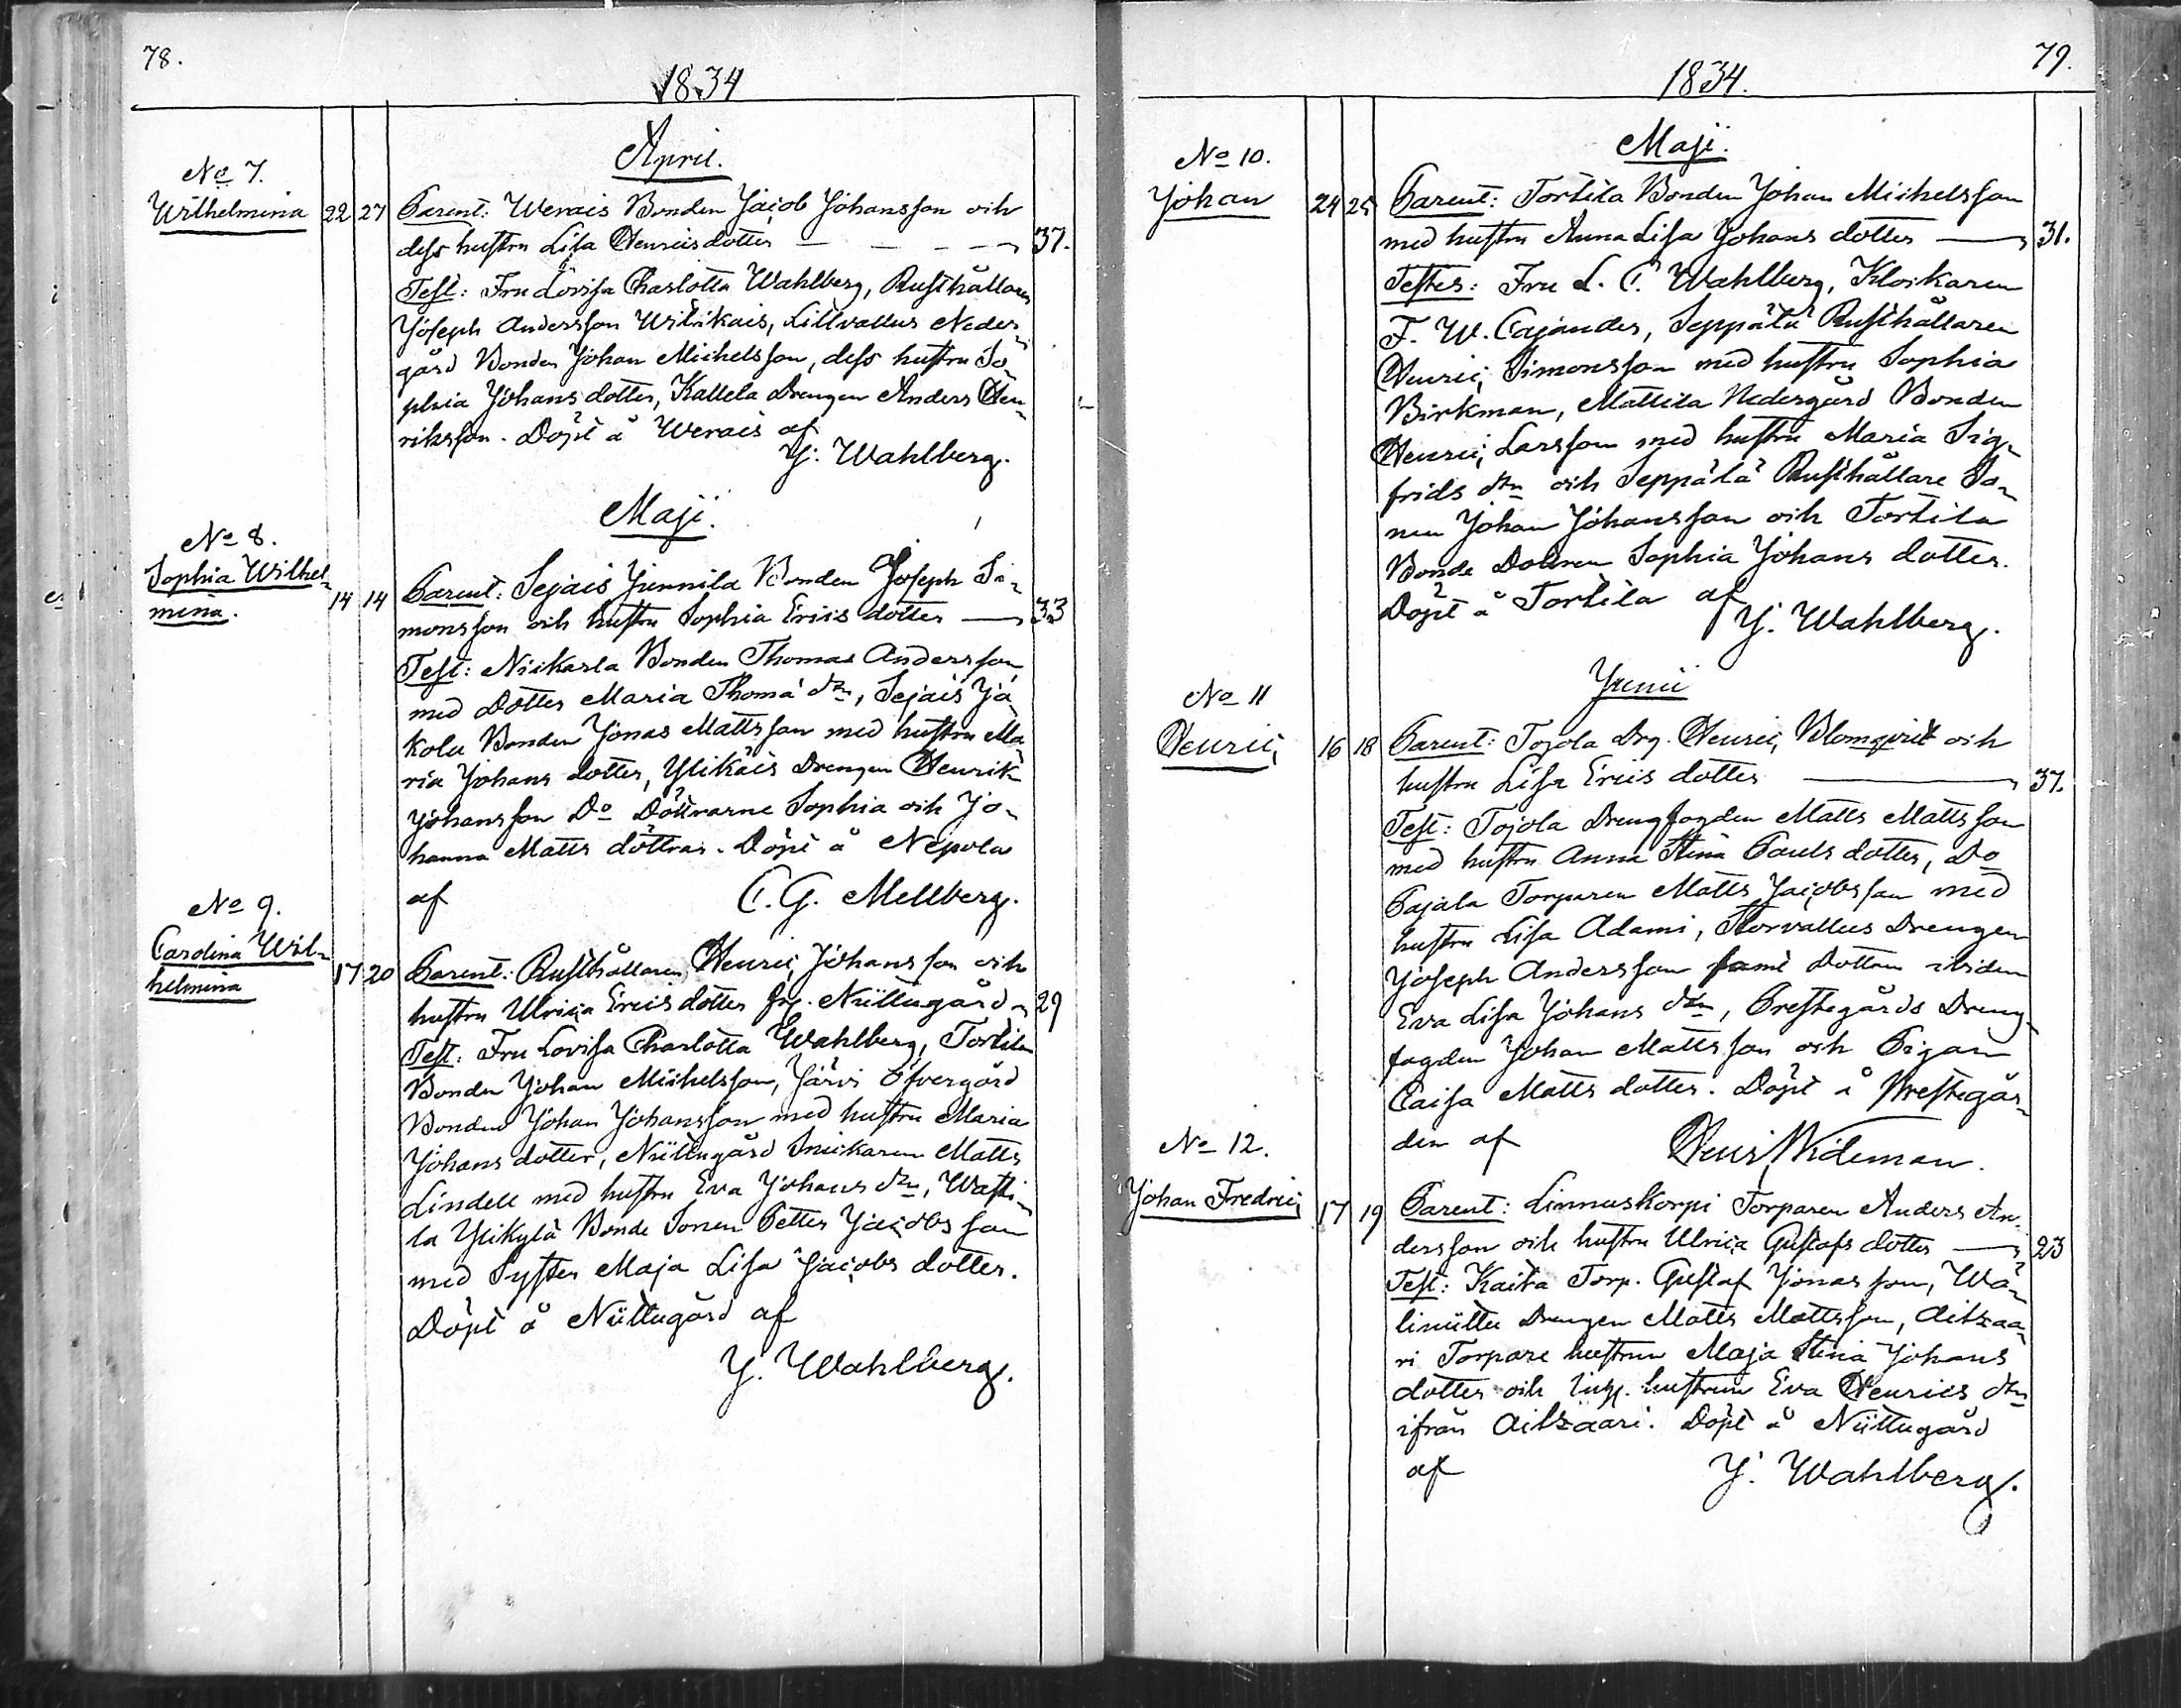 78.
1834
April.
No 7.
Wilhelmina 22 27 Parent: Werais Bonden Jacob Johansson och
dess hustru Lisa Henricsdotter — — — — 37.
Test: Fru Lovisa Charlotta Wahlberg, Rusthållaren
Joseph Andersson Wilikais, Lillvallus Neder
gård Bonden Johan Michelsson, dess hustru So
phia Johansdotter, Kallela Drengen Anders Hen
riksson. Döpt å Werais af
J. Wahlberg.
Maji.
No 8.
Sophia Wilhel-
mina. 14 14 Parent: Sejais Junnila Bonden Joseph Si-
monsson och hustru Sophia Ericsdotter — 33
Test: Nickarla Bonden Thomas Andersson
med Dotter Maria Thomæ dtr, Sejais Ja
kola Bonden Jonas Mattsson med hustru Ma
ria Johansdotter, Ylikäis Drengen Henrik
Johansson Do Döttrarne Sophia och Jo-
hanna Matts döttrar. Döpt å Nepola
af C. G. Mellberg.
No 9.
Carolina Wil-
helmina 17 20 Parent: Rusthållaren Henric Johansson och
hustru Ulrica Ericsdotter frp. Niittugård 29
Test: Fru Lovisa Charlotta Wahlberg, Tortila
Bonden Johan Michelsson, Järvi Öfvergård
Bonden Johan Johansson med hustru Maria
Johansdotter, Niittugård Snickaren Matts
Lindell med hustru Eva Johans dtr, Watti-
la Ylikylä Bonde Sonen Petter Jacobsson
med Syster Maja Lisa Jacobsdotter.
Döpt å Niittugård af
J. Wahlberg.
79.
1834.
Maji.
No 10.
Johan 24 25 Parent: Tortila Bonden Johan Michelsson
med hustru Anna Lisa Johansdotter — 31.
Testes: Fru L. C. Wahlberg, Klockaren
F. W. Cajander, Seppälä Rusthållaren
Henric Simonsson med hustru Sophia
Birkman, Mattila Nedergård Bonden
Henric Larsson med hustru Maria Sig-
frids dtr och Seppälä Rusthållare So-
nen Johan Johansson och Tortila
Bonde Dottren Sophia Johansdotter.
Döpt å Tortila af
J. Wahlberg.
Junii
No 11
Henric 16 18 Parent: Tojola Drg. Henric Blomqvist och
hustru Lisa Ericsdotter — 37.
Test: Tojola Drengfogden Matts Mattsson
med hustru Anna Stina Paulsdotter, Do
Pajala Torparen Matts Jacobsson med
hustru Lisa Adami, Storvallus Drengen
Joseph Andersson samt Dottren ibidem
Eva Lisa Johans dtr, Prestegårds Dreng-
fogden Johan Mattsson och Pigan
Caisa Mattsdotter. Döpt å Prestegår-
den af Henr. Wideman.
No 12.
Johan Fredric 17 19 Parent: Linnuskorpi Torparen Anders An-
dersson och hustru Ulrica Gustafsdotter — 23
Test: Kaita Torp. Gustaf Jonasson, Wä-
liniittu Drengen Matts Mattsson, Aitzaa-
ri Torpare hustrun Maja Stina Johans
dotter och Inhy. hustrun Eva Henrics dtr
ifrån Aitzaari. Döpt å Niittugård
af J. Wahlberg.